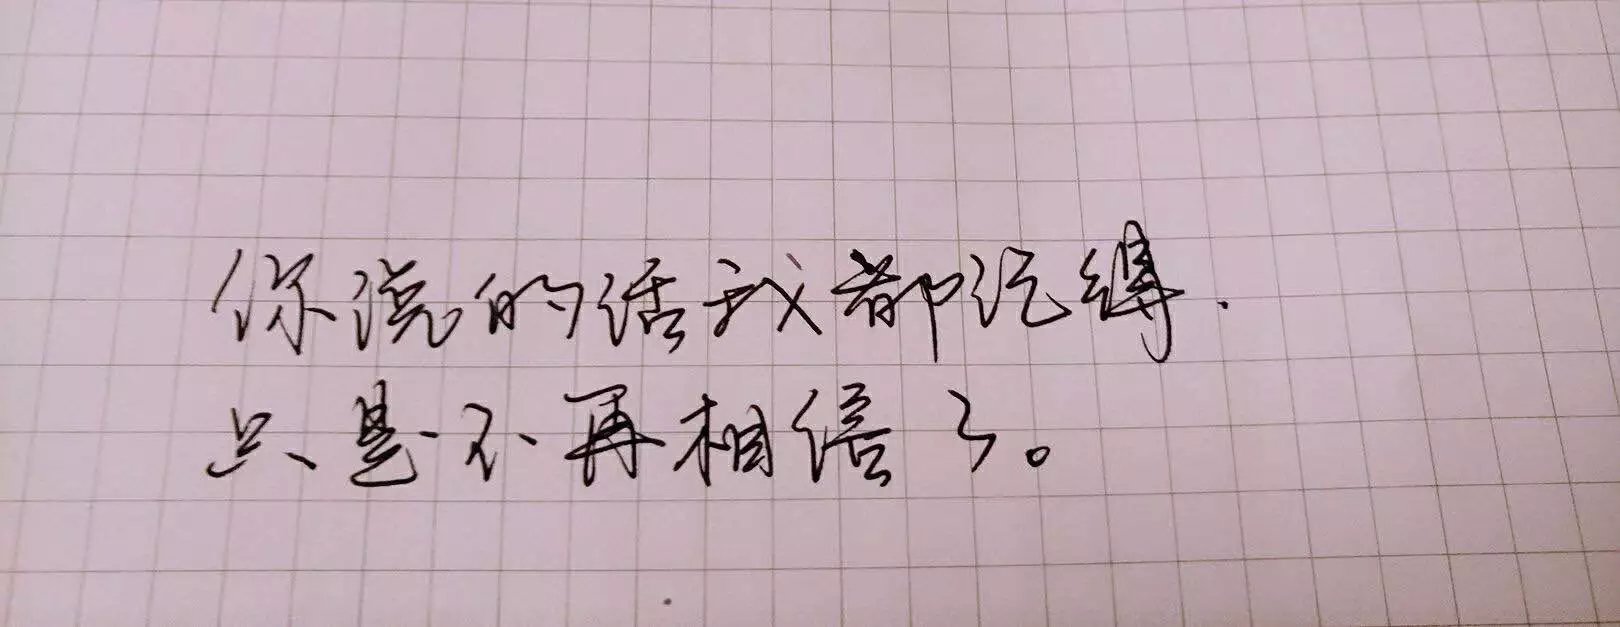 你说的话我都记得.
只是不再相信了。